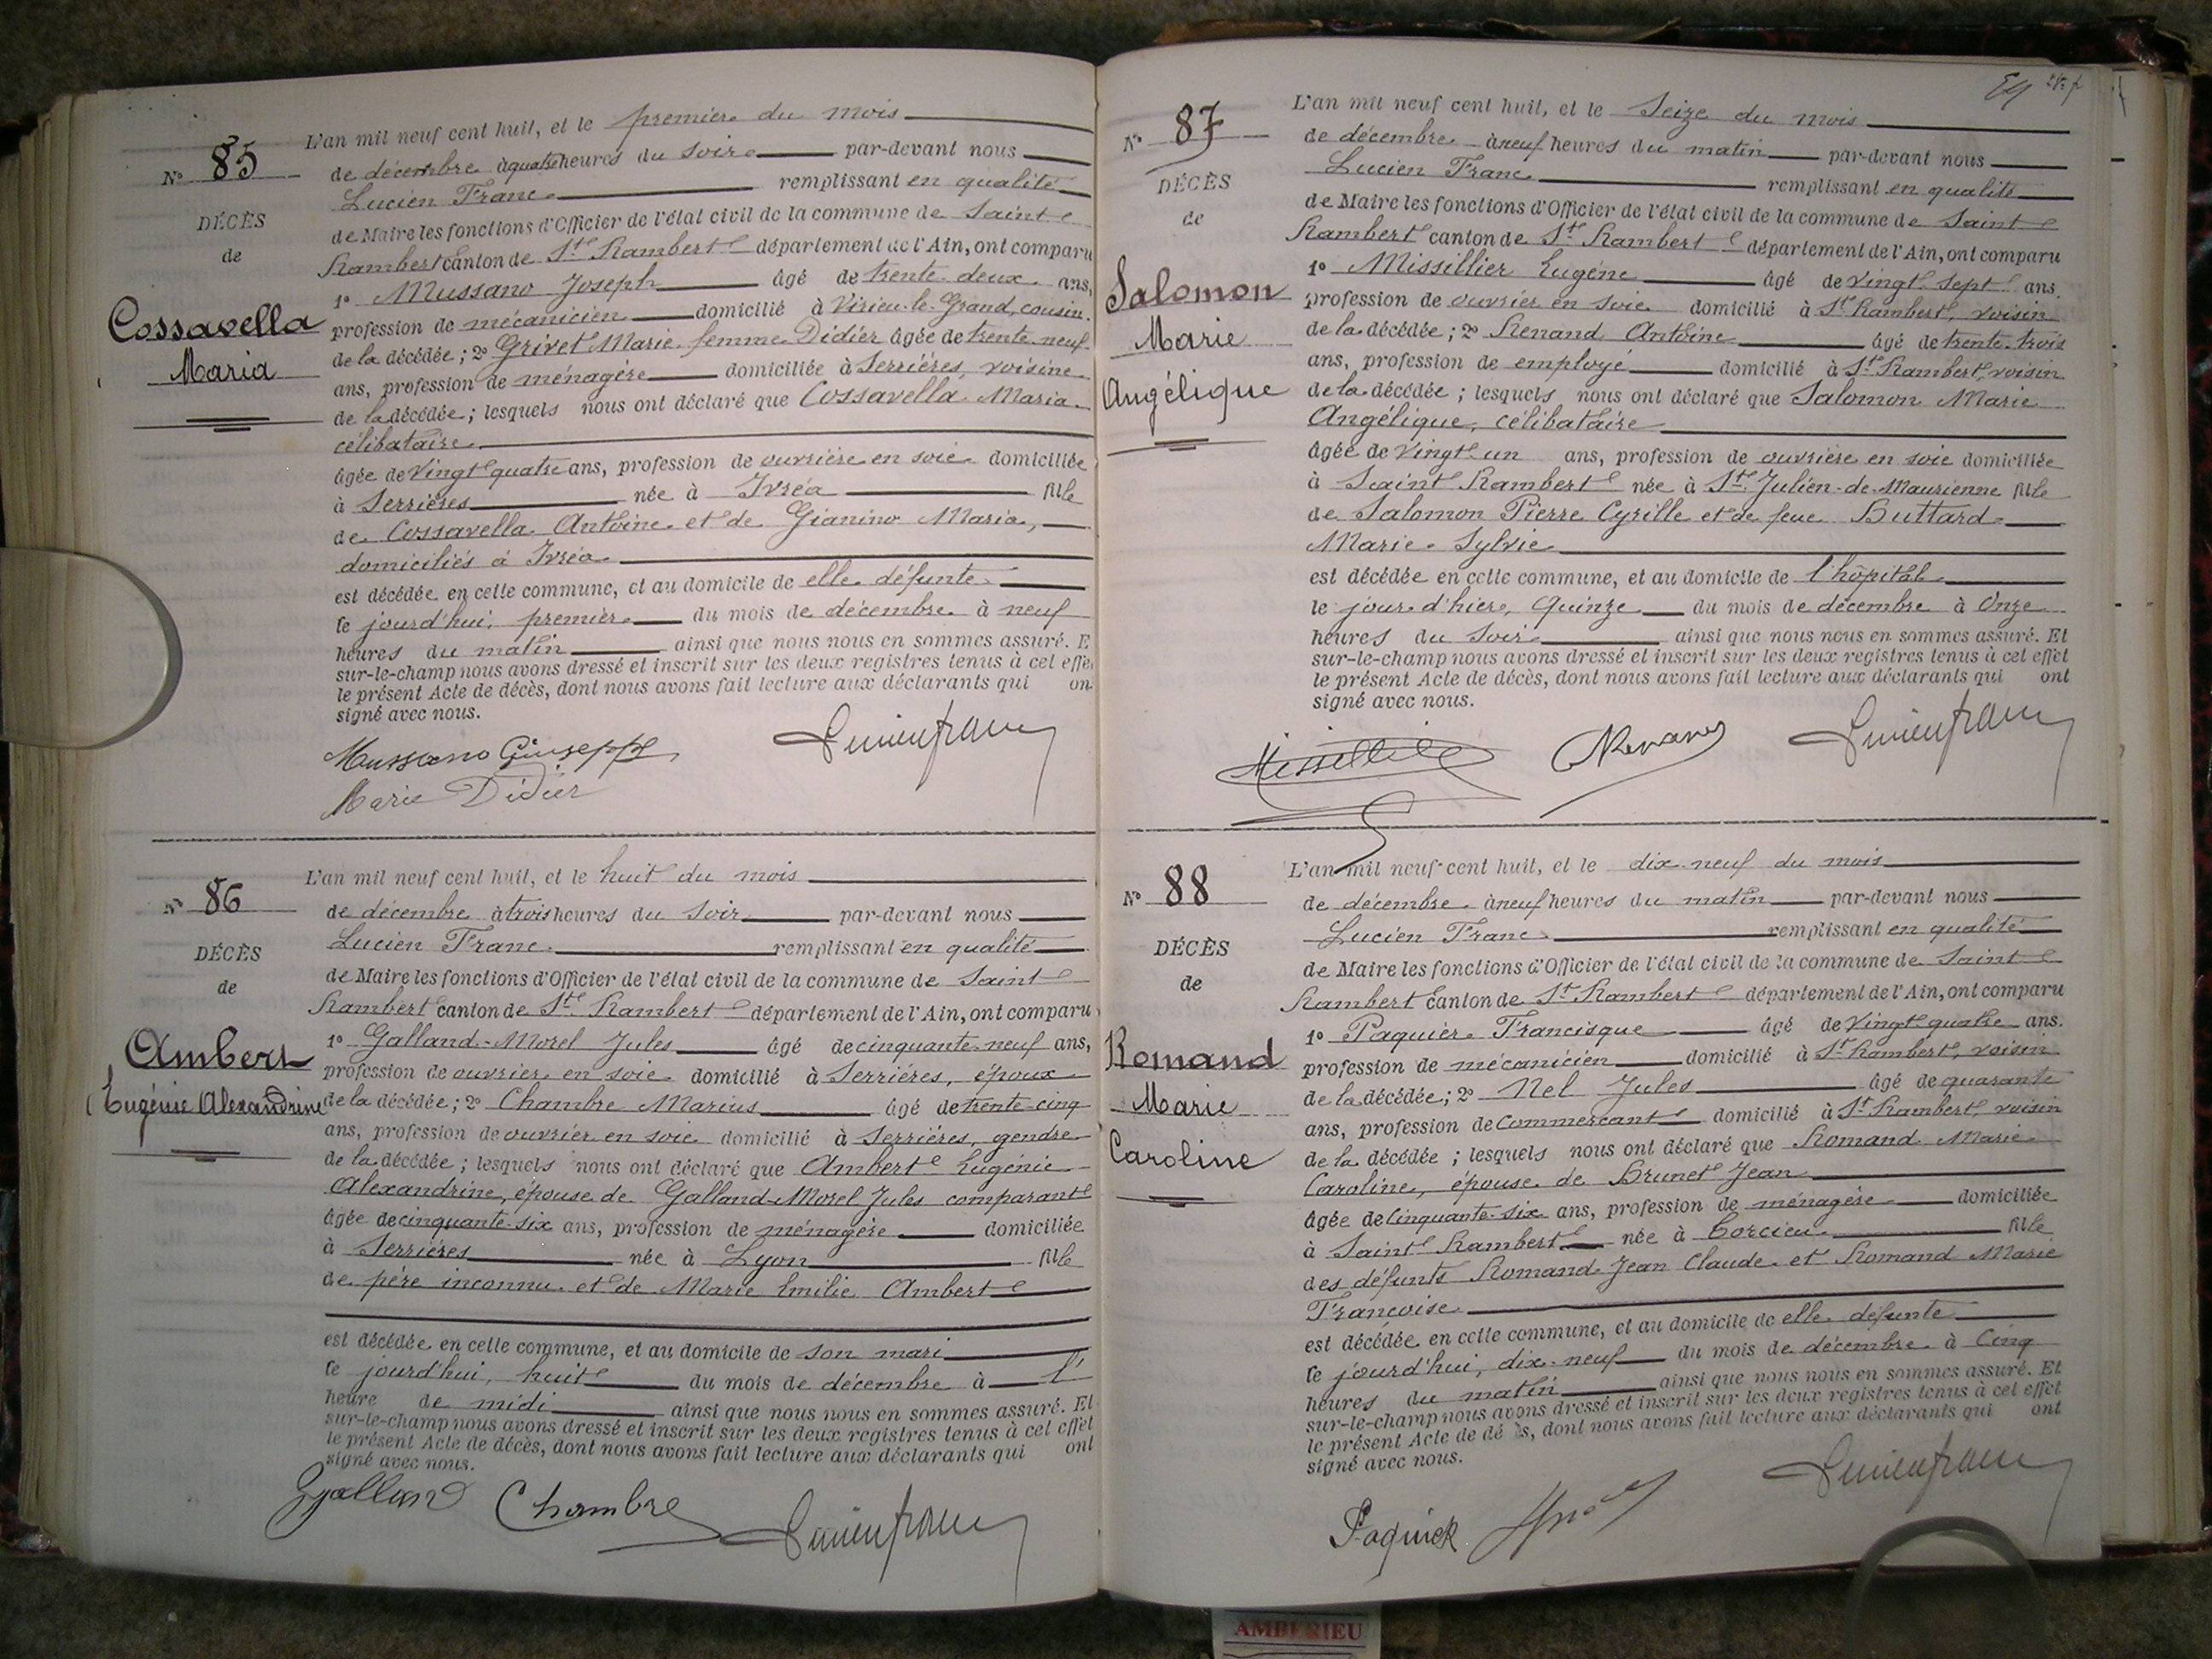 L'an mil neuf cent huit, et le premier du mois
N° 85
de décembre à quatre heures du soir par-devant nous
Lucien Franc remplissant en qualité
DÉCÈS
de Maire les fonctions d'Officier de l'état civil de la commune de Saint
de
Rambert canton de St Rambert département de l'Ain, ont comparu
1° Mussano Joseph âgé de trente deux ans,
Cossavella
profession de mécanicien domicilié à Virieu-le-Grand, cousin
Maria
de la décédée ; 2° Grivet Marie femme Didier âgée de trente-neuf
ans, profession de ménagère domiciliée à Serrières, voisine
de la décédée ; lesquels nous ont déclaré que Cossavella Maria
célibataire
âgée de vingt quatre ans, profession de ouvrière en soie domiciliée
à Serrières née à Ivréa fille
de Cossavella Antoine et de Gianino Maria,
domiciliés à Ivréa
est décédée en cette commune, et au domicile de elle défunte
le jourd'hui, premier du mois de décembre à neuf
heures du matin ainsi que nous nous en sommes assuré. E
sur-le-champ nous avons dressé et inscrit sur les deux registres tenus à cet effe
le présent Acte de décès, dont nous avons fait lecture aux déclarants qui on
signé avec nous.
Mussano Giuseppe
Lucien franc
Marie Didier
L'an mil neuf cent huit, et le huit du mois
N° 86
de décembre à trois heures du soir par-devant nous
Lucien Franc remplissant en qualité
DÉCÈS
de Maire les fonctions d'Officier de l'état civil de la commune de Saint
de
Rambert canton de St Rambert département de l'Ain, ont comparu
1° Galland-Morel Jules âgé de cinquante-neuf ans,
Ambert
profession de ouvrier en soie domicilié à Serrières, époux
Eugénie Alexandrine
de la décédée ; 2° Chambre Marius âgé de trente-cinq
ans, profession de ouvrier en soie domicilié à Serrières, gendre
de la décédée ; lesquels nous ont déclaré que Ambert Eugénie
Alexandrine, épouse de Galland-Morel Jules comparant
âgée de cinquante-six ans, profession de ménagère domiciliée
à Serrières née à Lyon fille
de père inconnu et de Marie Emilie Ambert
est décédée en cette commune, et au domicile de son mari
le jourd'hui, huit du mois de décembre à l'
heure de midi ainsi que nous nous en sommes assuré. Et
sur-le-champ nous avons dressé et inscrit sur les deux registres tenus à cet effet
le présent Acte de décès, dont nous avons fait lecture aux déclarants qui ont
signé avec nous.
Galland Chambre Lucien franc
L'an mil neuf cent huit, et le seize du mois
N° 87
de décembre à neuf heures du matin par-devant nous
Lucien Franc remplissant en qualité
DÉCÈS
de Maire les fonctions d'Officier de l'état civil de la commune de Saint
de
Rambert canton de St Rambert département de l'Ain, ont comparu
1° Missillier Eugène âgé de vingt sept ans.
Salomon
profession de ouvrier en soie domicilié à St Rambert, voisin
Marie
de la décédée ; 2° Renand Antoine âgé de trente-trois
ans, profession de employé domicilié à St Rambert, voisin
Angélique
de la décédée ; lesquels nous ont déclaré que Salomon Marie
Angélique, célibataire
âgée de vingt un ans, profession de ouvrière en soie domiciliée
à Saint Rambert née à St Julien-de-Maurienne fille
de Salomon Pierre Cyrille et de feue Buttard
Marie Sylvie
est décédée en cette commune, et au domicile de l'hôpital
le jour d'hier, quinze du mois de décembre à onze
heures du soir ainsi que nous nous en sommes assuré. Et
sur-le-champ nous avons dressé et inscrit sur les deux registres tenus à cet effet
le présent Acte de décès, dont nous avons fait lecture aux déclarants qui ont
signé avec nous.
Missillier Renand Lucien franc
L'an mil neuf cent huit, et le dix-neuf du mois
N° 88
de décembre à neuf heures du matin par-devant nous
Lucien Franc remplissant en qualité
DÉCÈS
de Maire les fonctions d'Officier de l'état civil de la commune de Saint
de
Rambert canton de St Rambert département de l'Ain, ont comparu
1° Paquier Francisque âgé de vingt quatre ans.
Romand
profession de mécanicien domicilié à St Rambert, voisin
Marie
de la décédée ; 2° Nel Jules âgé de quarante
ans, profession de commerçant domicilié à St Rambert, voisin
Caroline
de la décédée ; lesquels nous ont déclaré que Romand Marie
Caroline, épouse de Brunet Jean
âgée de cinquante-six ans, profession de ménagère domiciliée
à Saint Rambert née à Torcieu fille
des défunts Romand Jean Claude et Romand Marie
Françoise
est décédée en cette commune, et au domicile de elle défunte
le jourd'hui, dix-neuf du mois de décembre à cinq
heures du matin ainsi que nous nous en sommes assuré. Et
sur-le-champ nous avons dressé et inscrit sur les deux registres tenus à cet effet
le présent Acte de dé ès, dont nous avons fait lecture aux déclarants qui ont
signé avec nous.
Lucien franc
AMBERIEU